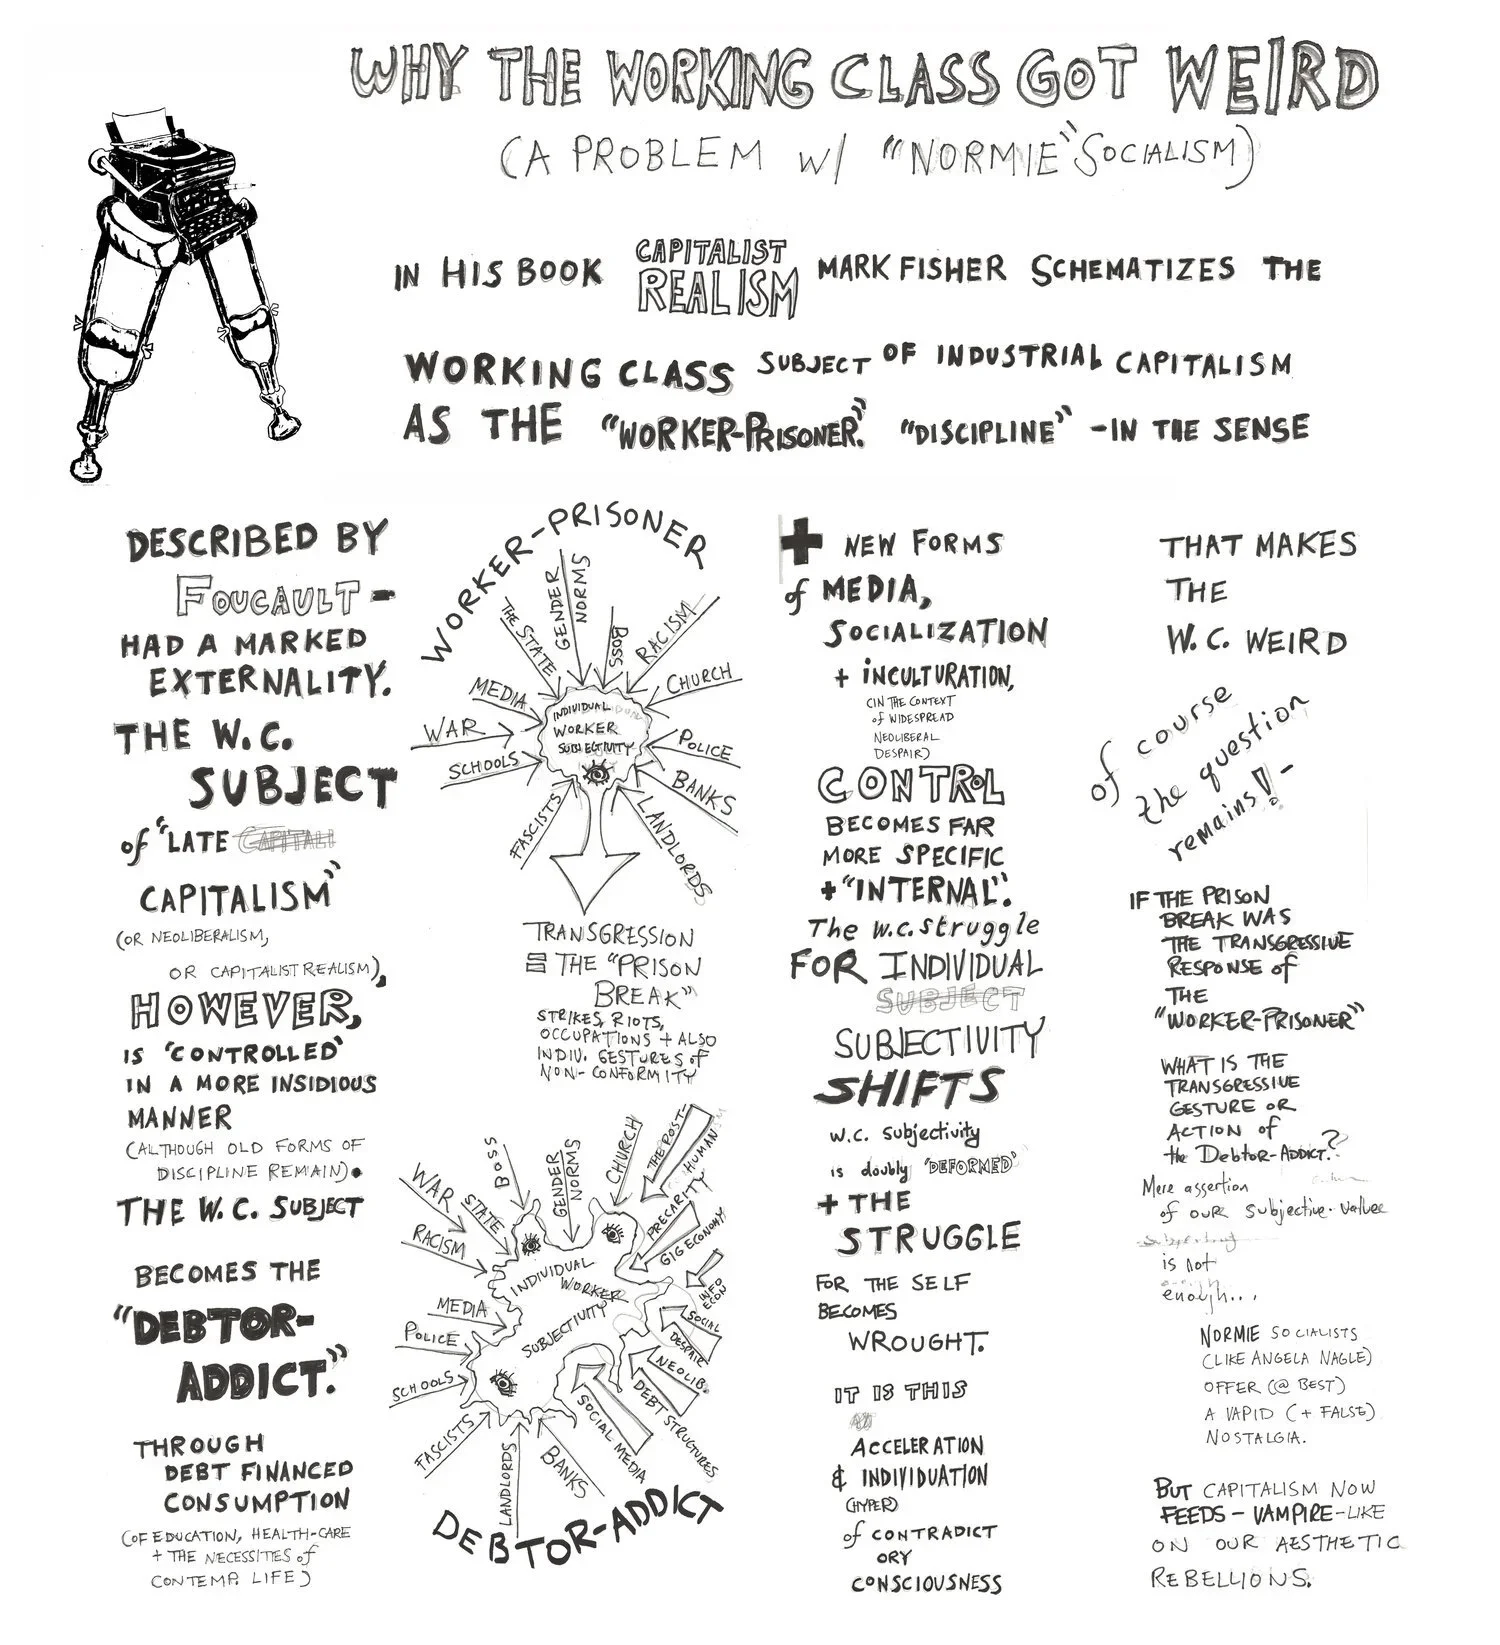 WHY THE WORKING CLASS GOT WEIRD
(A PROBLEM W/ "NORMIE" SOCIALISM)
IN HIS BOOK CAPITALIST REALISM MARK FISHER SCHEMATIZES THE
WORKING CLASS SUBJECT OF INDUSTRIAL CAPITALISM
AS THE "WORKER-PRISONER." "DISCIPLINE" - IN THE SENSE
DESCRIBED BY
FOUCAULT -
HAD A MARKED
EXTERNALITY.
THE W.C.
SUBJECT
of "LATE CAPITALI
CAPITALISM"
(OR NEOLIBERALISM,
OR CAPITALIST REALISM),
HOWEVER,
IS 'CONTROLLED'
IN A MORE INSIDIOUS
MANNER
(ALTHOUGH OLD FORMS OF
DISCIPLINE REMAIN).
THE W.C. SUBJECT
BECOMES THE
"DEBTOR-
ADDICT."
THROUGH
DEBT FINANCED
CONSUMPTION
(OF EDUCATION, HEALTH-CARE
+ THE NECESSITIES of
CONTEMP. LIFE)
WORKER-PRISONER
THE STATE
GENDER
NORMS
BOSS
RACISM
CHURCH
MEDIA
WAR
SCHOOLS
FASCISTS
POLICE
BANKS
LANDLORDS
INDIVIDUAL
WORKER
SUBJECTIVITY
TRANSGRESSION
= THE "PRISON
BREAK"
STRIKES, RIOTS,
OCCUPATIONS + ALSO
INDIV. GESTURES of
NON-CONFORMITY
WAR
STATE
BOSS
GENDER
NORMS
CHURCH
THE POST-
HUMAN
PRECARITY
GIG ECONOMY
INFO
ECON
SOCIAL
DESPAIR
NEOLIB.
DEBT STRUCTURES
SOCIAL MEDIA
RACISM
MEDIA
POLICE
SCHOOLS
FASCISTS
LANDLORDS
BANKS
INDIVIDUAL
WORKER
SUBJECTIVITY
DEBTOR-ADDICT
+ NEW FORMS
of MEDIA,
SOCIALIZATION
+ INCULTURATION,
(IN THE CONTEXT
of WIDESPREAD
NEOLIBERAL
DESPAIR)
CONTROL
BECOMES FAR
MORE SPECIFIC
+ "INTERNAL".
The w.c. struggle
FOR INDIVIDUAL
SUBJECT
SUBJECTIVITY
SHIFTS
w.c. subjectivity
is doubly 'DEFORMED'
+ THE
STRUGGLE
FOR THE SELF
BECOMES
WROUGHT.
IT IS THIS
ACCELERATION
& INDIVIDUATION
(HYPER)
of CONTRADICT
ORY
CONSCIOUSNESS
THAT MAKES
THE
W.C. WEIRD
of course
the question
remains! -
IF THE PRISON
BREAK WAS
THE TRANSGRESSIVE
RESPONSE of
THE
"WORKER-PRISONER"
WHAT IS THE
TRANSGRESSIVE
GESTURE OR
ACTION of
the DEBTOR-ADDICT?
Mere assertion
of our subjective value
is not
enough...
NORMIE SOCIALISTS
(LIKE ANGELA NAGLE)
OFFER (@ BEST)
A VAPID (+ FALSE)
NOSTALGIA.
BUT CAPITALISM NOW
FEEDS - VAMPIRE-LIKE
ON OUR AESTHETIC
REBELLIONS.